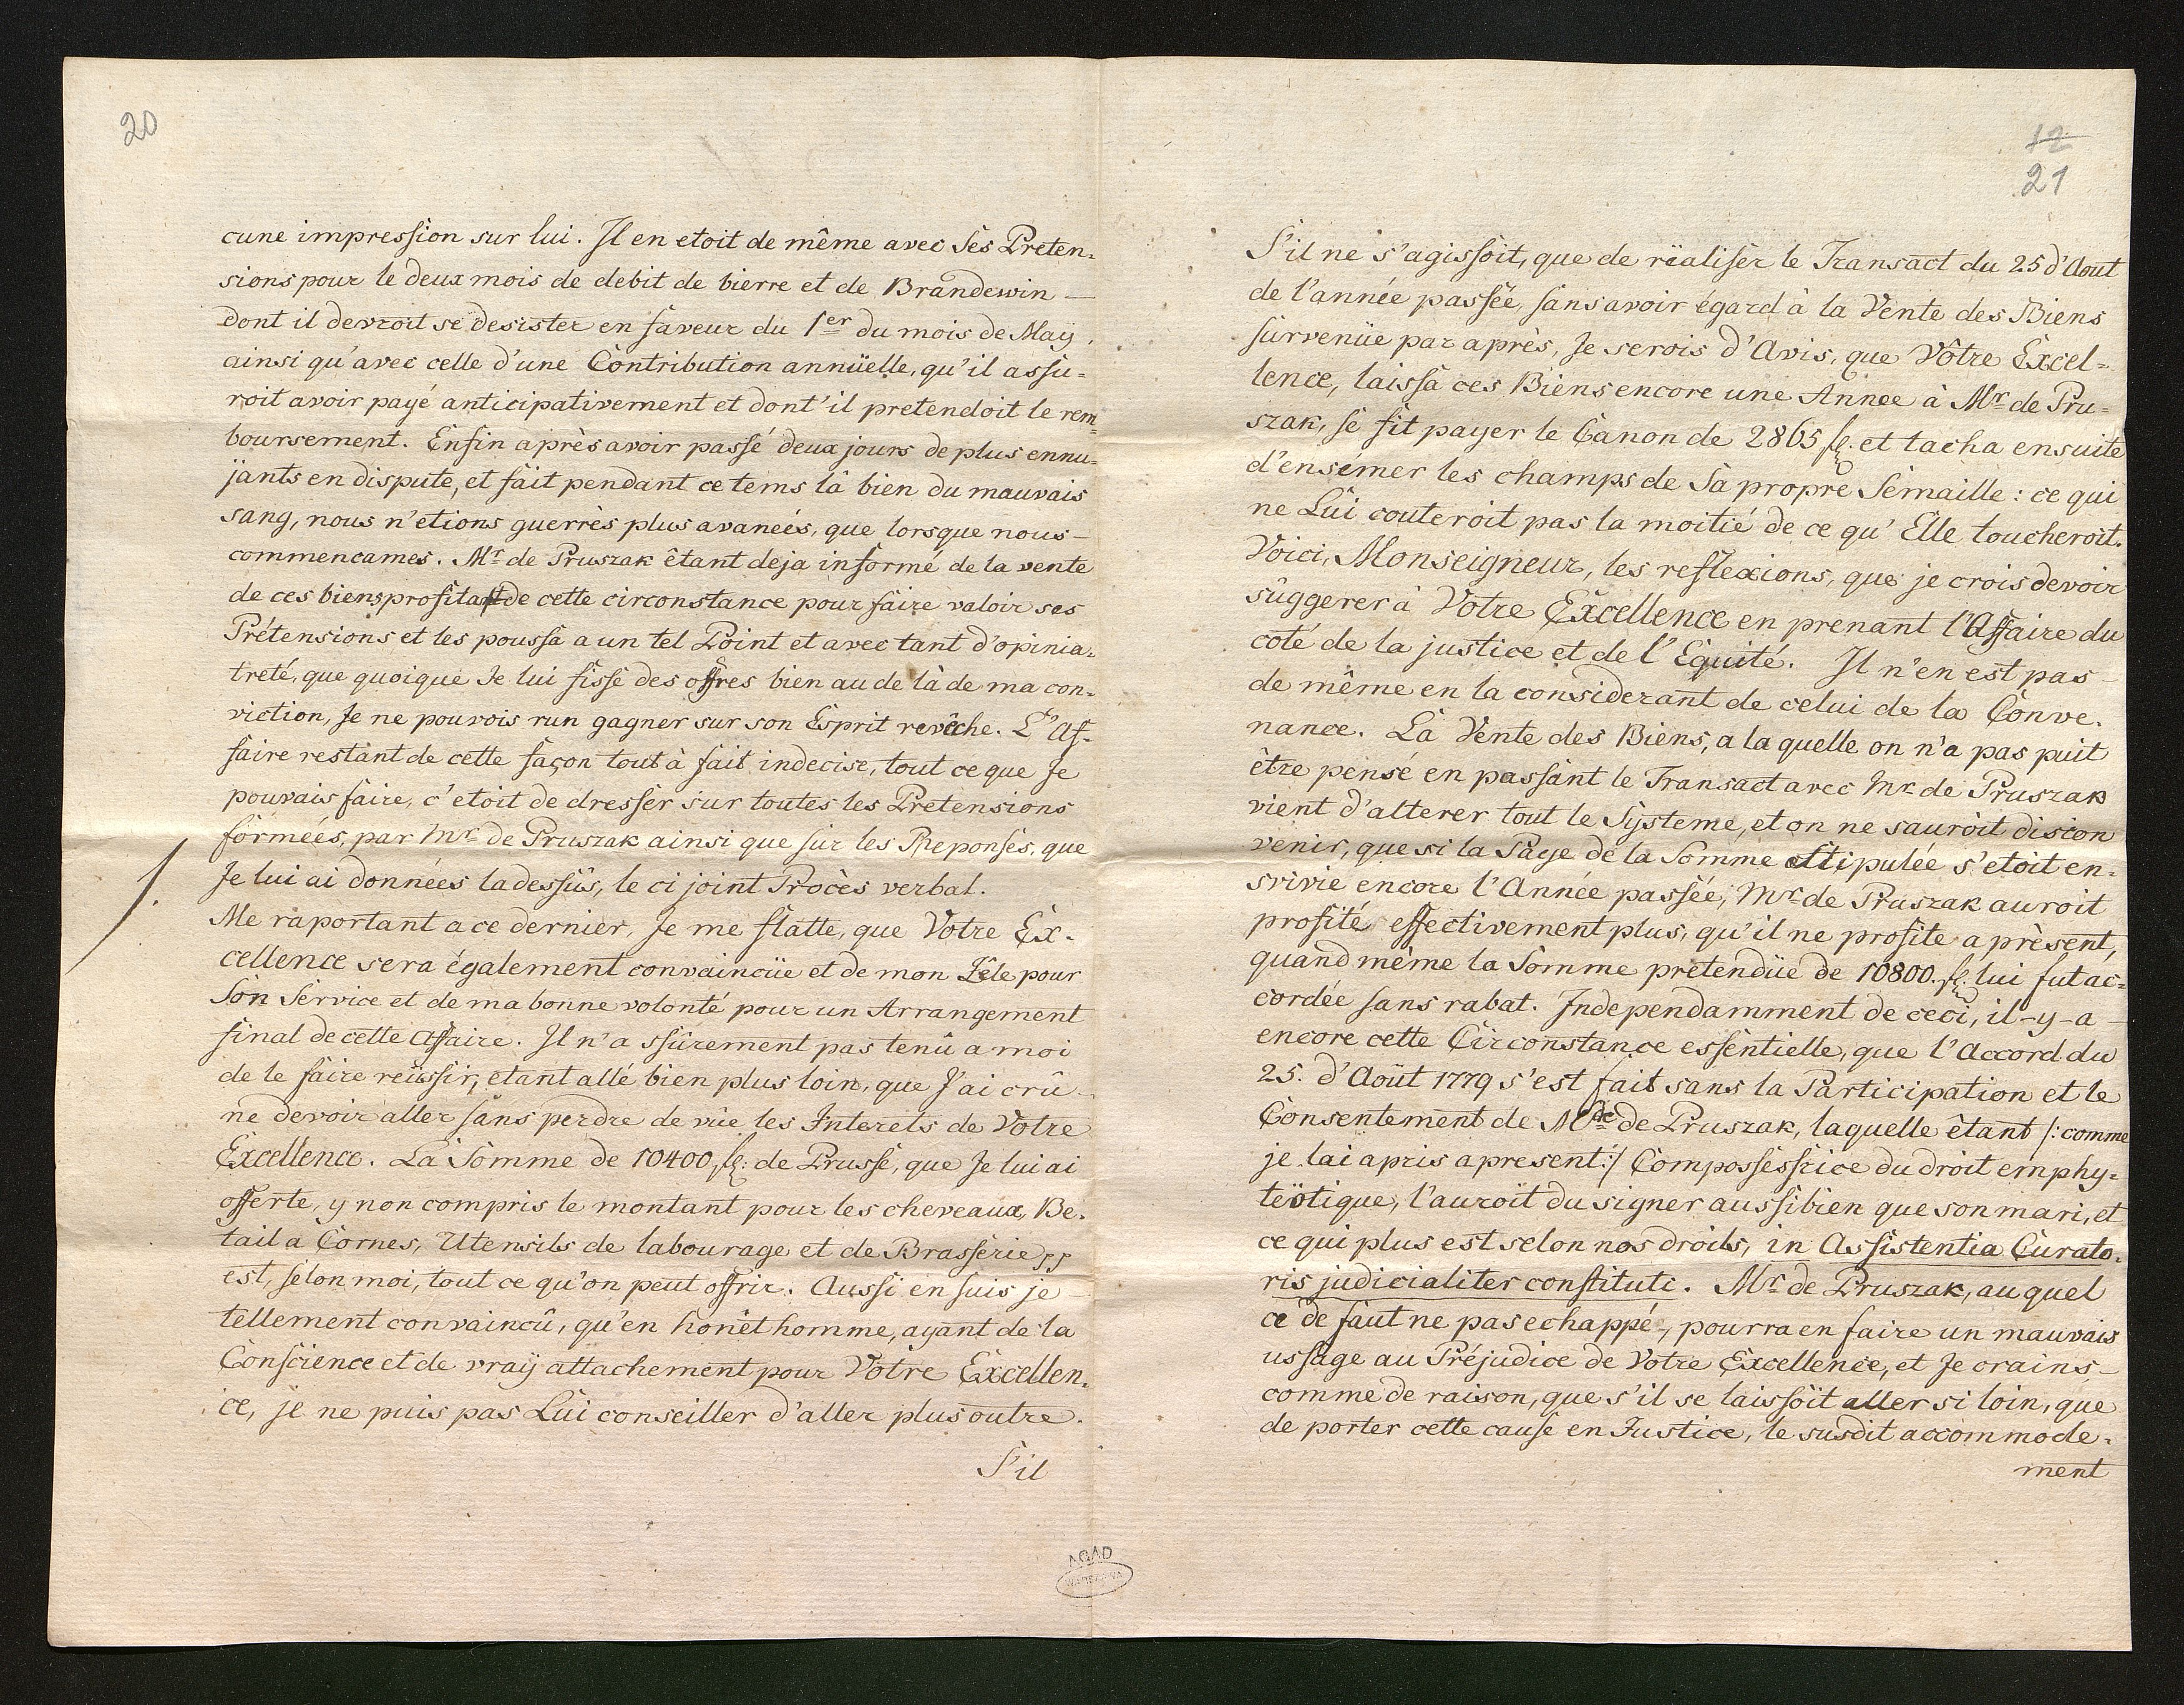 20
cune impression sur lui. Il en etoit de même avec ses Preten=
sions pour le deux mois de debit de bierre et de Brandewin —
dont il devroit se desister en faveur du 1er du mois de Maÿ,
ainsi qu'avec celle d'une Contribution annüelle, qu'il assu=
roit avoir payé anticipativement et dont'il pretendoit le rem=
boursement. Enfin après avoir passé deux jours de plus ennu=
jants en dispute, et fait pendant ce tems là bien du mauvais
sang, nous n'etions guerrès plus avaneés, que lorsque nous —
commencames. Mr de Pruszak êtant deja informé de la vente
de ces biens profita de cette circonstance pour faire valoir ses
Prétensions et les poussa a un tel Point et avec tant d'opinia=
treté, que quoique Je lui fisse des offres bien au de là de ma con=
viction, Je ne pouvois run gagner sur son Esprit revêche. L'Af=
faire restant de cette façon tout à fait indecise, tout ce que Je
pouvais faire, c'etoit de dresser sur toutes les Pretensions
formées, par Mr de Pruszak ainsi que sur les Reponses, que
1. Je lui ai données ladessûs, le ci joint Procès verbal.
Me raportant a ce dernier, Je me flatte, que Votre Ex=
cellence sera également convaincüe et de mon Zêle pour
Son Service et de ma bonne volonté pour un Arrangement
final de cette Affaire. Il n'a ssûrement pas tenû a moi
de le faire reüssir, etant allé bien plus loin, que J'ai crû —
ne devoir aller sans perdre de vüe les Interets de Votre
Excellence. La Somme de 10400 fl: de Prusse, que Je lui ai
offerte, y non compris le montant pour les cheveaux, Be=
tail a Cornes, Utensils de labourage et de Brasserie pp
est, selon moi, tout ce qu'on peut offrir. Aussi en suis je —
tellement convaincû, qu'en honêt homme, ayant de la
Conscience et de vraÿ attachement pour Votre Excellen=
ce, je ne puis pas Lui conseiller d'aller plus outre.
S'il
12
21
S'il ne s'agissoit, que de rëaliser le Transact du 25 d'Aout
de l'année passée, sans avoir égard à la Vente des Biens
survenüe par après, Je serois d'Avis, que Vôtre Excel=
lence, laissa ces Biens encore une Annee à Mr de Pru=
szak, se fit payer le Canon de 2865 fl. et tacha ensuite
d'ensemer les champs de Sa propre Semaille: ce qui
ne Lui couteroit pas la moitié de ce qu'Elle toucheroit.
Voici, Monseigneur, les reflexions, que je crois devoir
suggerer à Votre Excellence en prenant l'Affaire du
coté de la justice et de l'Equité. Il n'en est pas —
de même en la considerant de celui de la Conve=
nance. La Vente des Biens, a la quelle on n'a pas puit
être pensé en passant le Transact avec Mr de Pruszak
vient d'alterer tout le Systeme, et on ne sauroit discon
venir, que si la Paye de la Somme stipulée s'etoit en=
svivie encore l'Année passée, Mr de Pruszak auroit
profité effectivement plus, qu'il ne profite a prèsent,
quand même la Somme pretendüe de 10800. fl. lui fut ac=
cordée sans rabat. Independamment de ceci, il-y-a —
encore cette Circonstance essentielle, que l'Accord du
25. d'Août 1779 s'est fait sans la Participation et le
Consentement de Mde de Pruszak, laquelle êtant /: comme
je lai apris apresent :/ Compossessrice du droit emphy=
teötique, l'auroit du signer aussi bien que son mari, et
ce qui plus est selon nos droits, in Assistentia Curato=
ris judicialiter constituti. Mr de Pruszak, au quel
ce defaut ne pas echappé, pourra en faire un mauvais
ussage au Préjudice de Votre Excellence, et Je crains, —
comme de raison, que s'il se laissoit aller si loin, que
de porter cette cause en Justice, le susdit accommode=
ment
AGAD
WARSZAWA